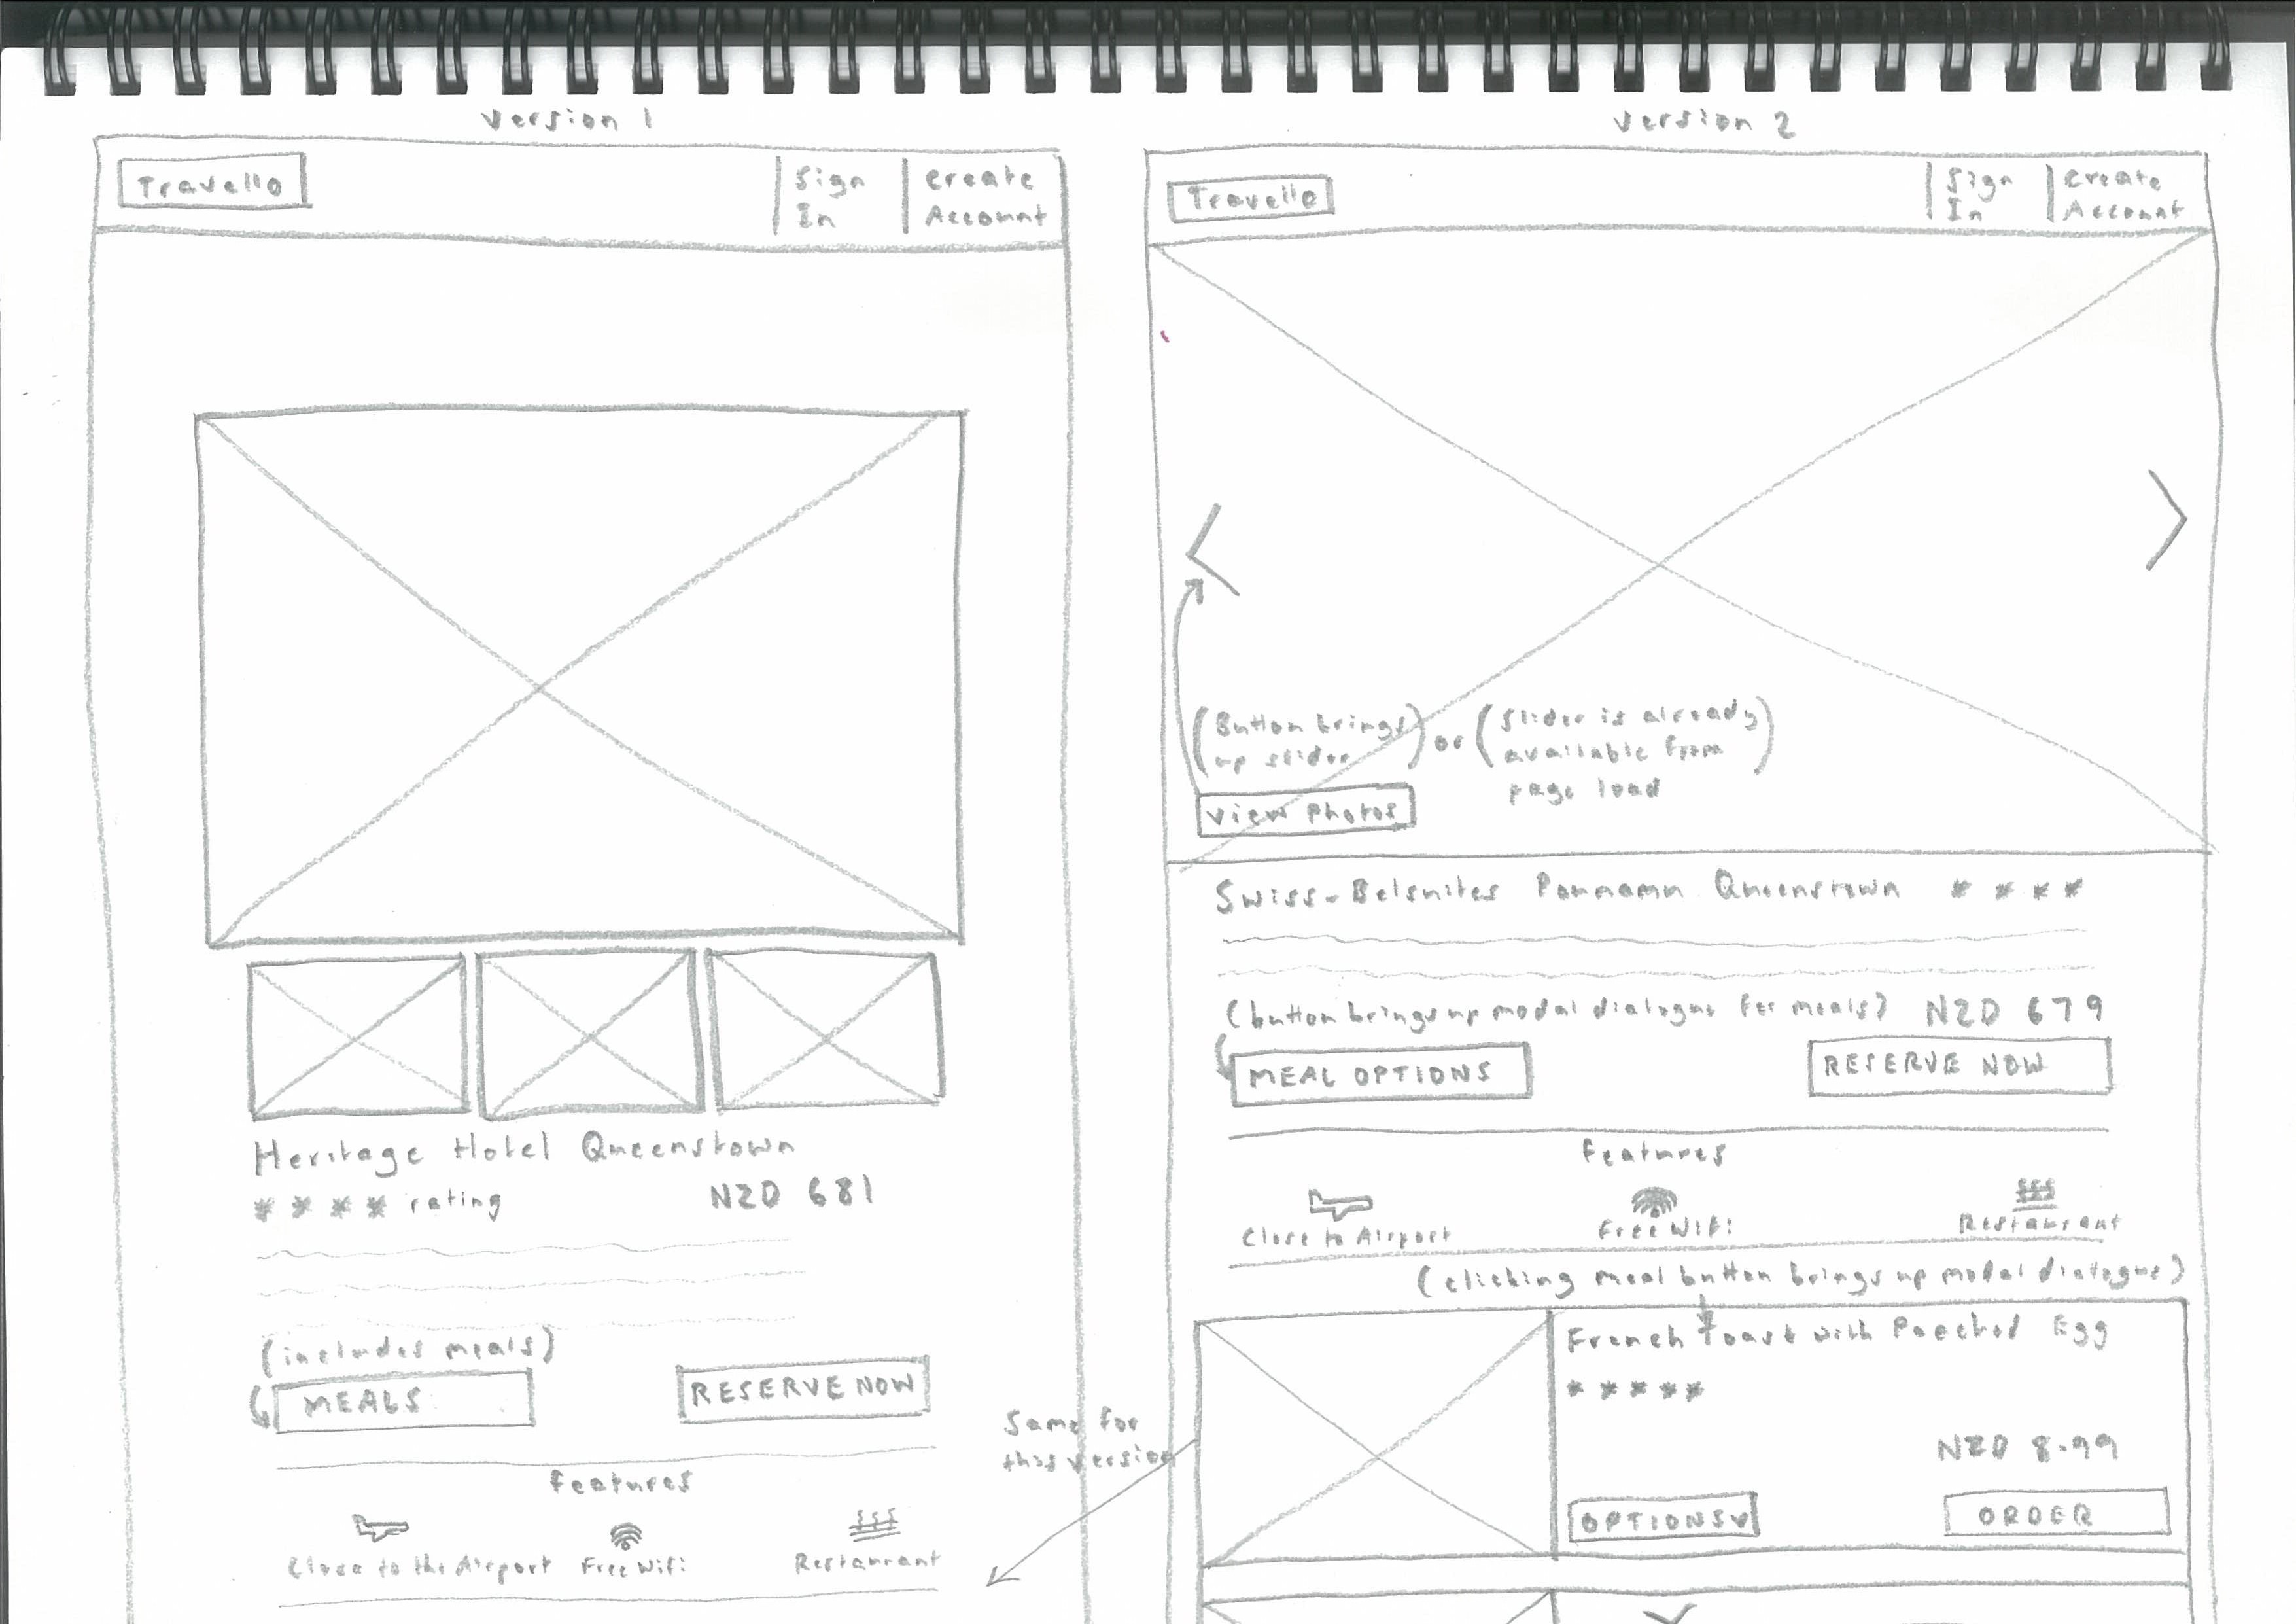 Version 1
Travello
Sign In
Create Account
Heritage Hotel Queenstown
**** rating
NZD 681
(includes meals)
MEALS
RESERVE NOW
Features
Close to the Airport
Free Wifi
Restaurant
Same for
this version
Version 2
Travello
Sign In
Create Account
(Button brings
up slider)
or
(slider is already
available from
page load)
View Photos
Swiss-Belsuites Pounamu Queenstown ****
(button brings up modal dialogue for meals)
NZD 679
MEAL OPTIONS
RESERVE NOW
Features
Close to Airport
Free Wifi
Restaurant
(clicking meal button brings up modal dialogue)
French Toast with Poached Egg
*****
NZD 8.99
OPTIONS
ORDER